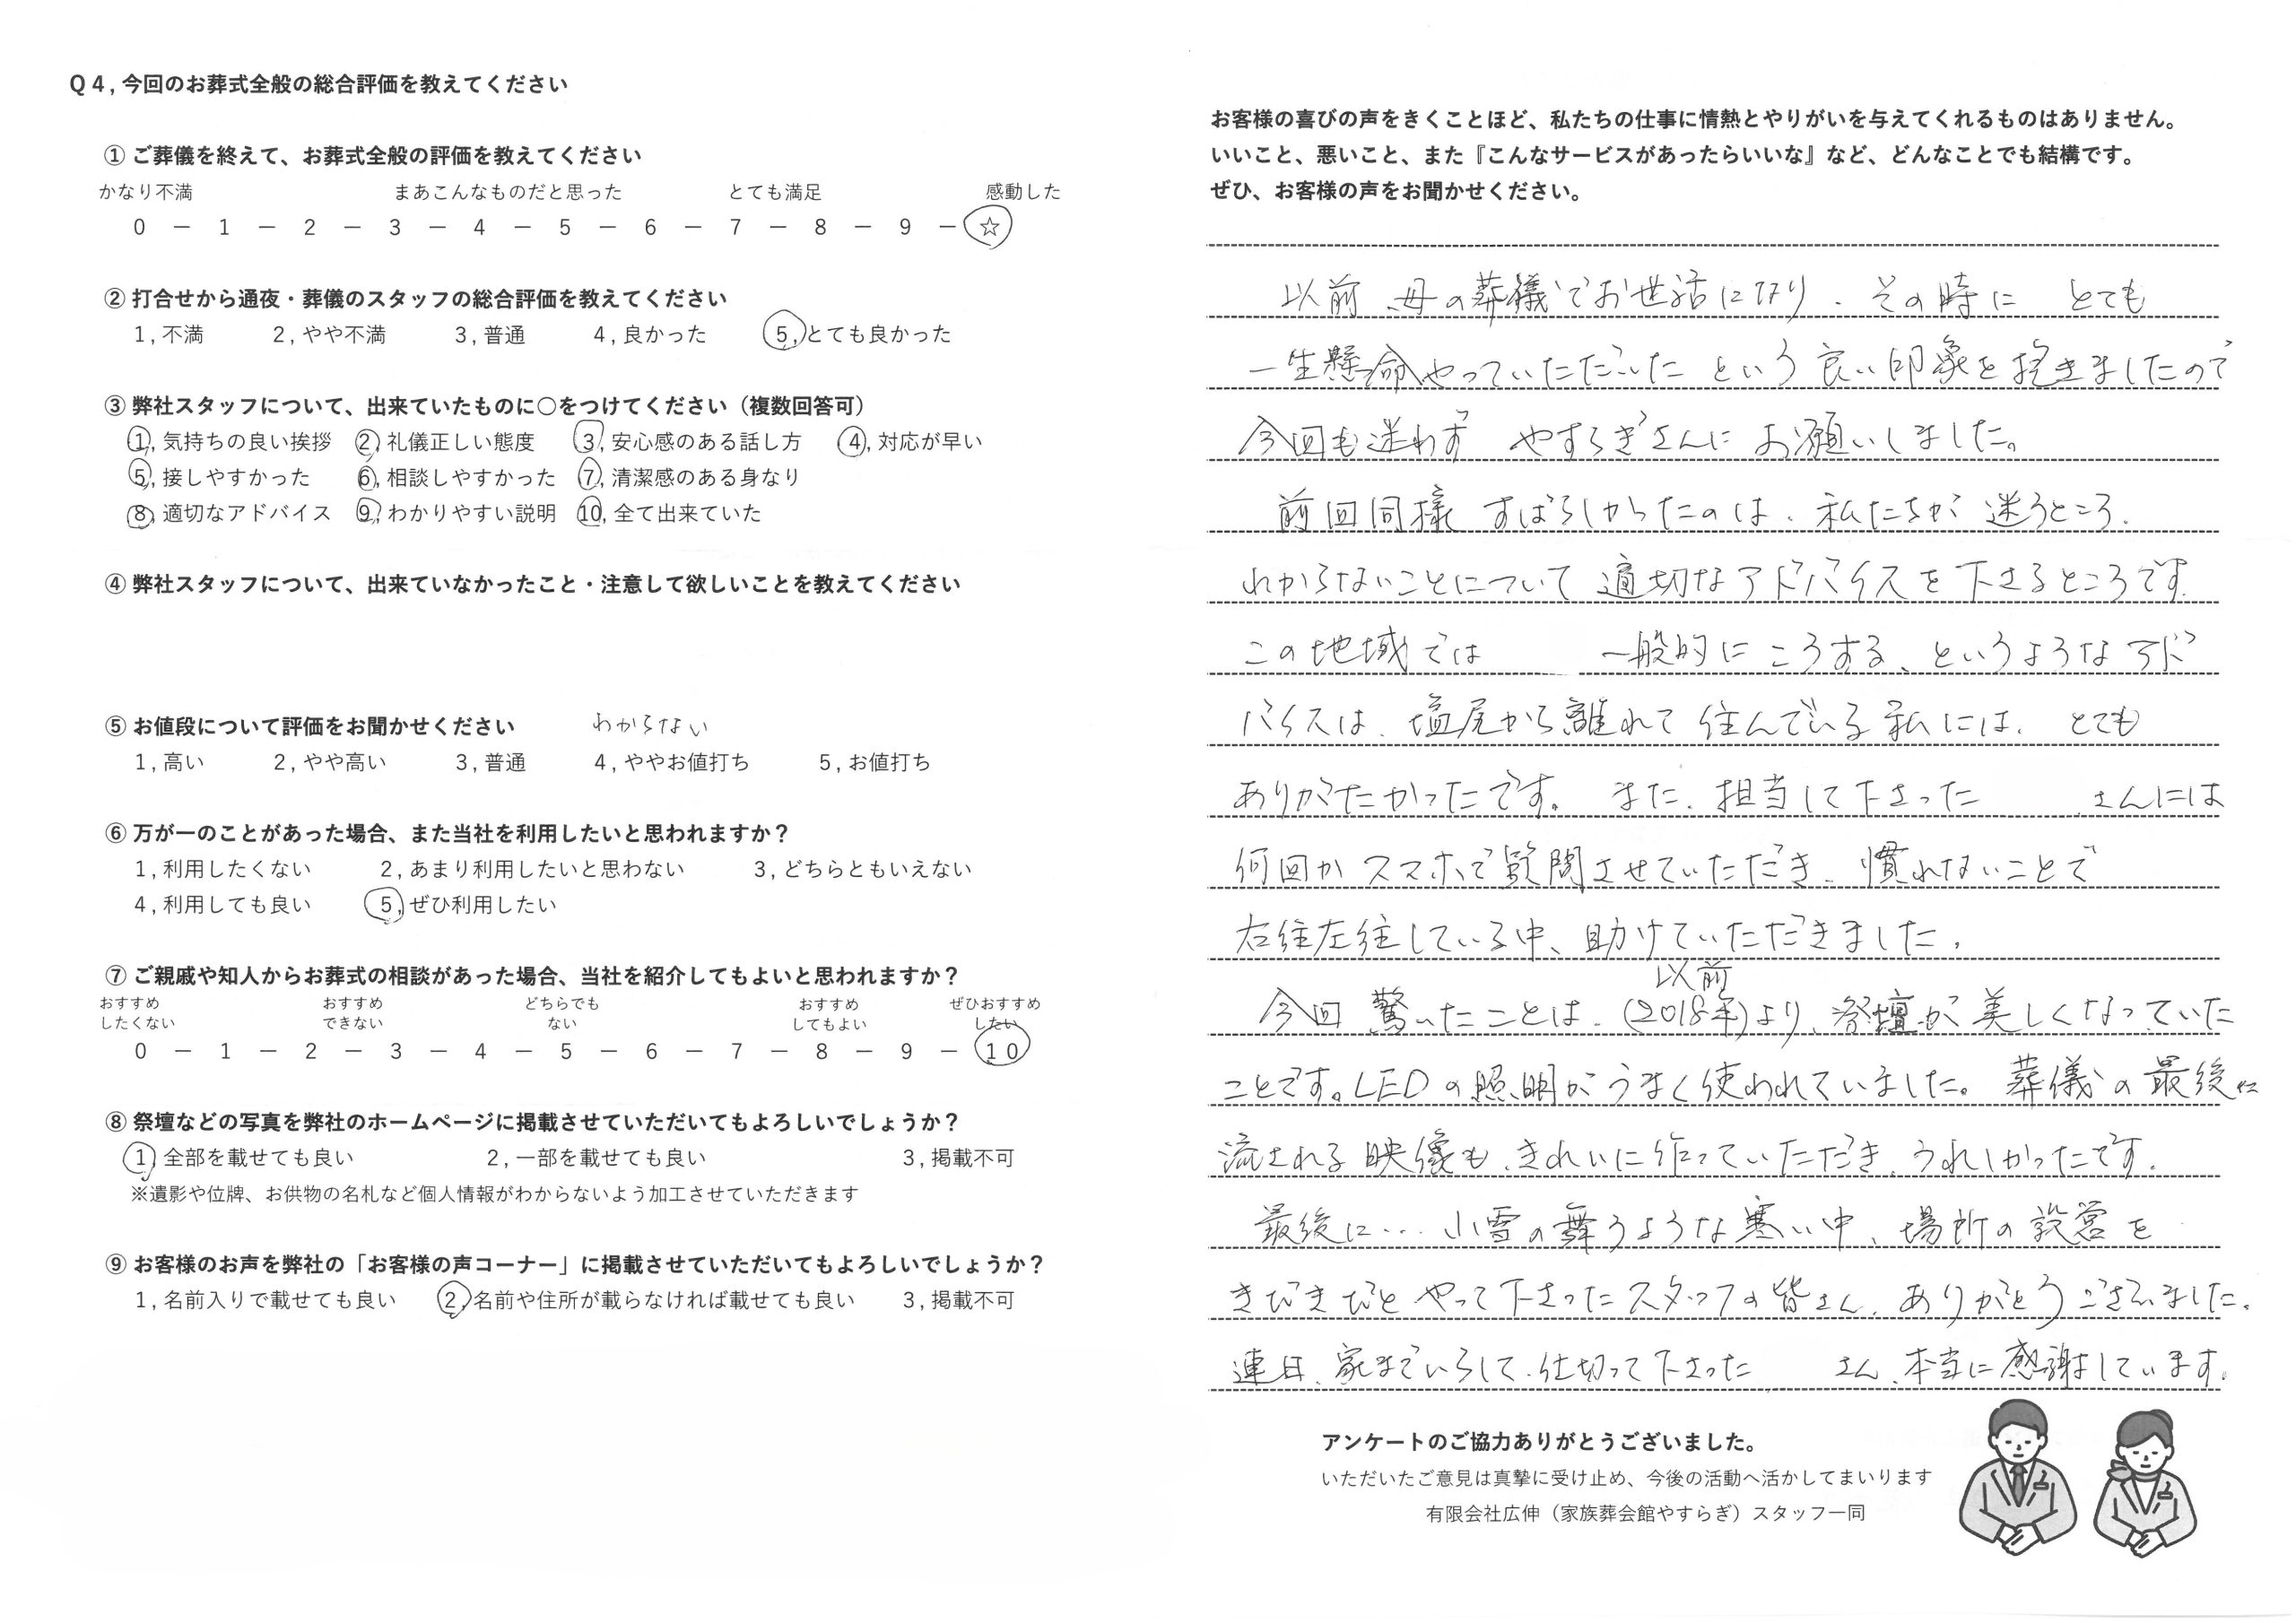 Q4,今回のお葬式全般の総合評価を教えてください
① ご葬儀を終えて、お葬式全般の評価を教えてください
かなり不満 まあこんなものだと思った とても満足 感動した
0 － 1 － 2 － 3 － 4 － 5 － 6 － 7 － 8 － 9 － ☆
② 打合せから通夜・葬儀のスタッフの総合評価を教えてください
1,不満 2,やや不満 3,普通 4,良かった 5,とても良かった
③ 弊社スタッフについて、出来ていたものに○をつけてください（複数回答可）
1,気持ちの良い挨拶 2,礼儀正しい態度 3,安心感のある話し方 4,対応が早い
5,接しやすかった 6,相談しやすかった 7,清潔感のある身なり
8,適切なアドバイス 9,わかりやすい説明 10,全て出来ていた
④ 弊社スタッフについて、出来ていなかったこと・注意して欲しいことを教えてください
⑤ お値段について評価をお聞かせください わからない
1,高い 2,やや高い 3,普通 4,ややお値打ち 5,お値打ち
⑥ 万が一のことがあった場合、また当社を利用したいと思われますか？
1,利用したくない 2,あまり利用したいと思わない 3,どちらともいえない
4,利用しても良い 5,ぜひ利用したい
⑦ ご親戚や知人からお葬式の相談があった場合、当社を紹介してもよいと思われますか？
おすすめ おすすめ どちらでも おすすめ ぜひおすすめ
したくない できない ない してもよい したい
0 － 1 － 2 － 3 － 4 － 5 － 6 － 7 － 8 － 9 － 10
⑧ 祭壇などの写真を弊社のホームページに掲載させていただいてもよろしいでしょうか？
1,全部を載せても良い 2,一部を載せても良い 3,掲載不可
※遺影や位牌、お供物の名札など個人情報がわからないよう加工させていただきます
⑨ お客様のお声を弊社の「お客様の声コーナー」に掲載させていただいてもよろしいでしょうか？
1,名前入りで載せても良い 2,名前や住所が載らなければ載せても良い 3,掲載不可
お客様の喜びの声をきくことほど、私たちの仕事に情熱とやりがいを与えてくれるものはありません。
いいこと、悪いこと、また『こんなサービスがあったらいいな』など、どんなことでも結構です。
ぜひ、お客様の声をお聞かせください。
以前、母の葬儀でお世話になり、その時に とても
一生懸命やっていただいた という 良い印象を抱きましたので
今回も迷わず やすらぎさんに お願いしました。
前回同様 すばらしかったのは、私たちが 迷うところ、
わからないことについて 適切なアドバイスを下さるところです。
この地域では 一般的に こうする、というようなアド
バイスは、塩尻から離れて住んでいる私には、とても
ありがたかったです。また、担当して下さった さんには
何回か スマホで質問させていただき、慣れないことで
右往左往している中、助けていただきました。
以前
今回 驚いたことは、(2018年)より、祭壇が美しくなっていた
ことです。LEDの照明がうまく使われていました。葬儀の最後に
流される映像も、きれいに作っていただき、うれしかったです。
最後に… 小雪の舞うような寒い中、場所の設営を
きびきびと やって下さったスタッフの皆さん、ありがとうございました。
連日、家までいらして、仕切って下さった さん、本当に感謝しています。
アンケートのご協力ありがとうございました。
いただいたご意見は真摯に受け止め、今後の活動へ活かしてまいります
有限会社広伸（家族葬会館やすらぎ）スタッフ一同